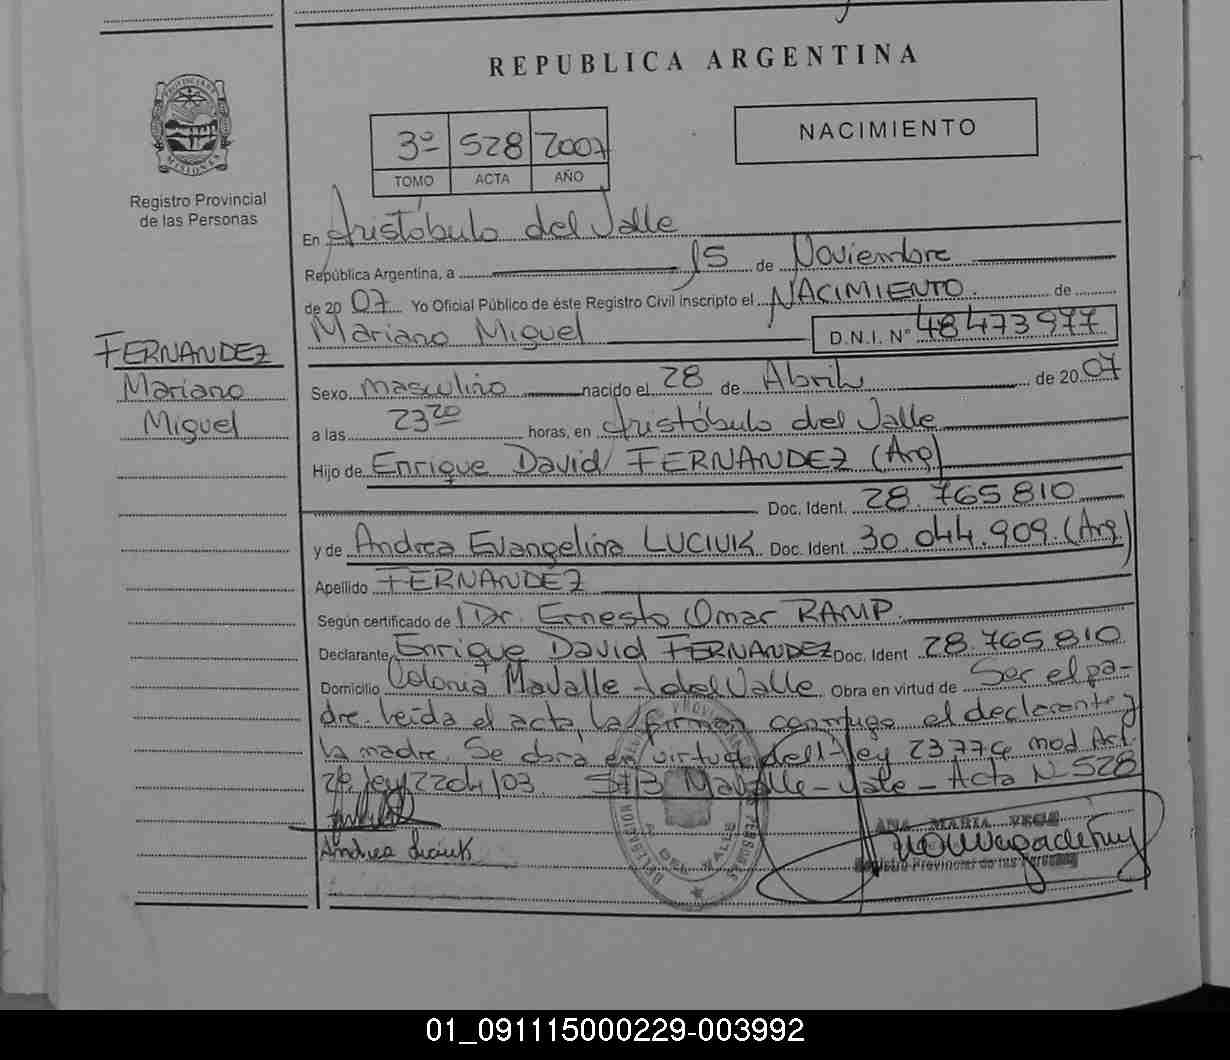 REPUBLICA ARGENTINA
3º 528 2007
TOMO ACTA AÑO
NACIMIENTO
Registro Provincial
de las Personas
En Aristóbulo del Valle
República Argentina, a 15 de Noviembre
de 2007 Yo Oficial Público de éste Registro Civil inscripto el NACIMIENTO de
Mariano Miguel D.N.I. Nº 48473977
FERNANDEZ
Mariano
Miguel
Sexo masculino nacido el 28 de Abril de 2007
a las 23 20 horas, en Aristóbulo del Valle
Hijo de Enrique David FERNANDEZ (Arg)
Doc. Ident. 28.765.810
y de Andrea Evangelina LUCIUK Doc. Ident. 30.044.909.(Arg)
Apellido FERNANDEZ
Según certificado de Dr. Ernesto Omar RAMP.
Declarante Enrique David FERNANDEZ Doc. Ident 28.765.810
Domicilio Colonia Mavalle - del Valle Obra en virtud de Ser el pa-
dre. Leída el acta, la firman conmigo el declarante y
la madre. Se obra en virtud del Ley 23776 mod Art.
2º Ley 2204/03. Mavalle - Vale - Acta Nº 528
Andrea Luciuk
DEL VALLE
ANA MARIA
Registro Provincial de las Personas
01_091115000229-003992